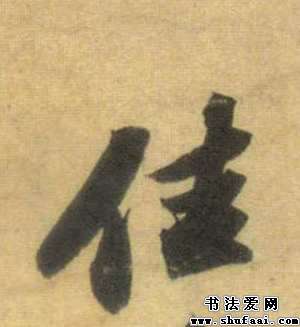 佳
书法爱网
www.shufaai.com